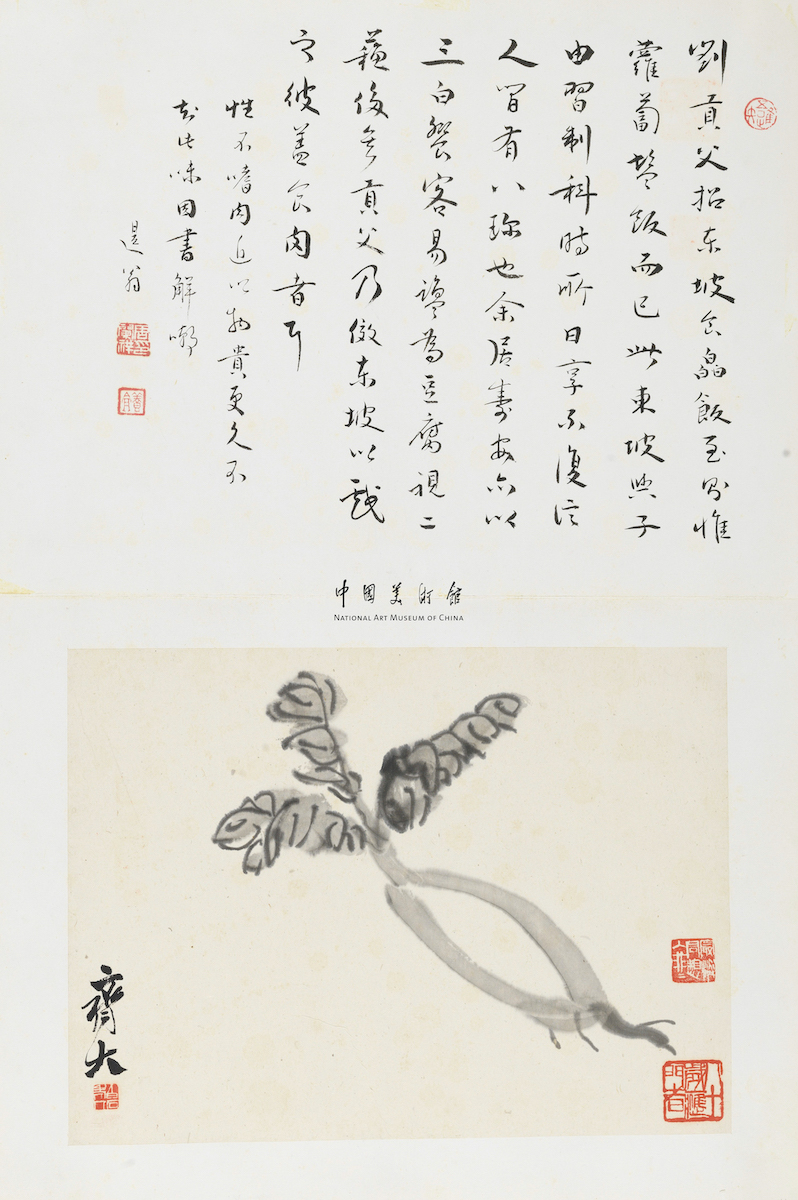 劉貢父招東坡食皛飯至則惟
蘿蔔鹽飯而已此東坡與子
由習制科時所日享不復信
人間有八珍也余居壽安亦以
三白餐客易鹽為豆腐視二
蘇侈矣貢父乃倣東坡以戲
之彼蓋食肉者耳
性不嗜肉近以物貴更久不
知此味因書解嘲
退翁
中國美術館
NATIONAL ART MUSEUM OF CHINA
齊大